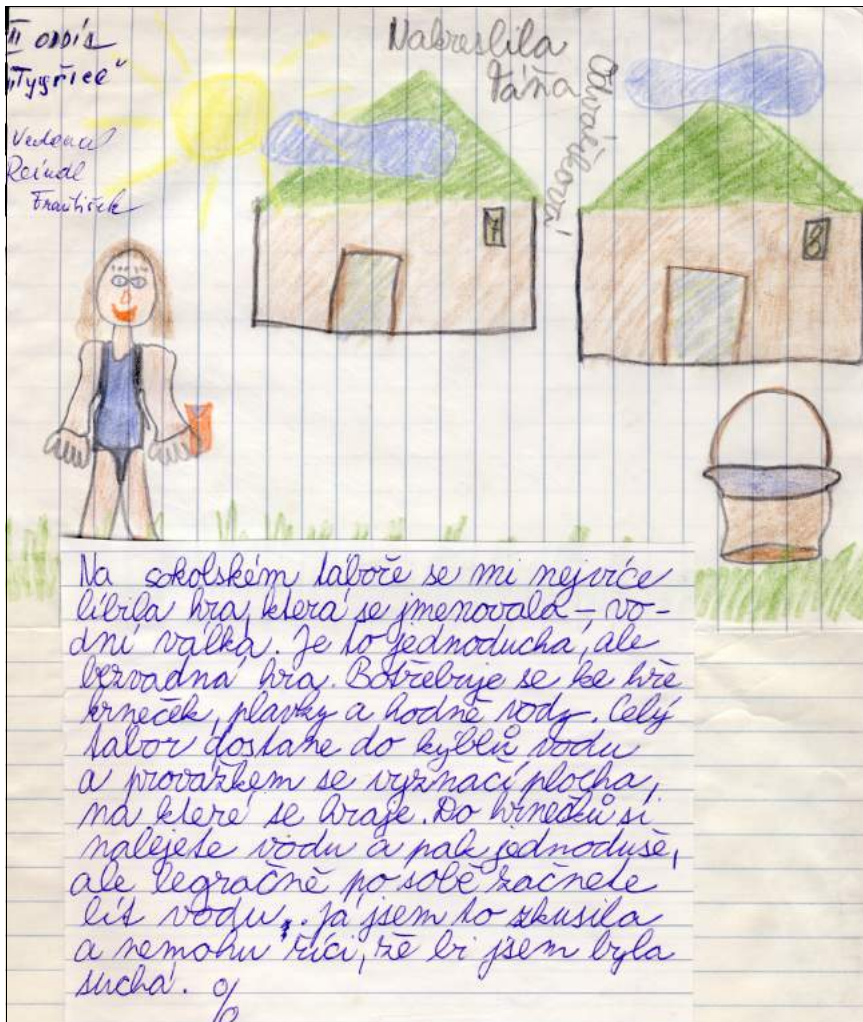 II odd
"Tygřice"
Vedoucí
Reindl
František
Nakreslila
Táňa
7
8
Na sokolském táboře se mi nejvíce
líbila hra, která se jmenovala – vo-
dní válka. Je to jednoduchá, ale
bezvadná hra. Potřebuje se ke hře
hrneček, plavky a hodně vody. Celý
tábor dostane do kýblů vodu
a provázkem se vyznačí plocha,
na které se hraje. Do hrnečků si
nalejete vodu a pak jednoduše,
ale legračně po sobě začnete
lít vodu. Já jsem to zkusila
a nemohu říci, že bi jsem byla
suchá. %